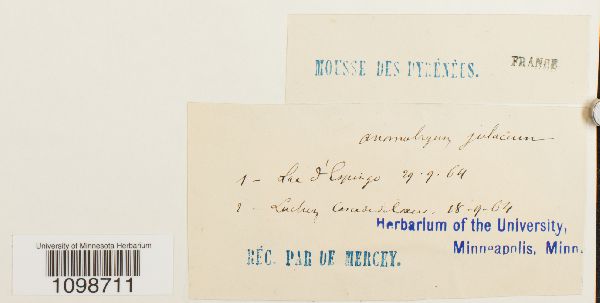 MOUSSE DES PYRÉNÉES.
FRANCE
anomobryum julaceum
1 - Lac d'Espingo 29-9-64
2 - Luchon 18-9-64
Herbarium of the University,
Minneapolis, Minn.
RÉC. PAR DE MERCEY.
University of Minnesota Herbarium
1098711